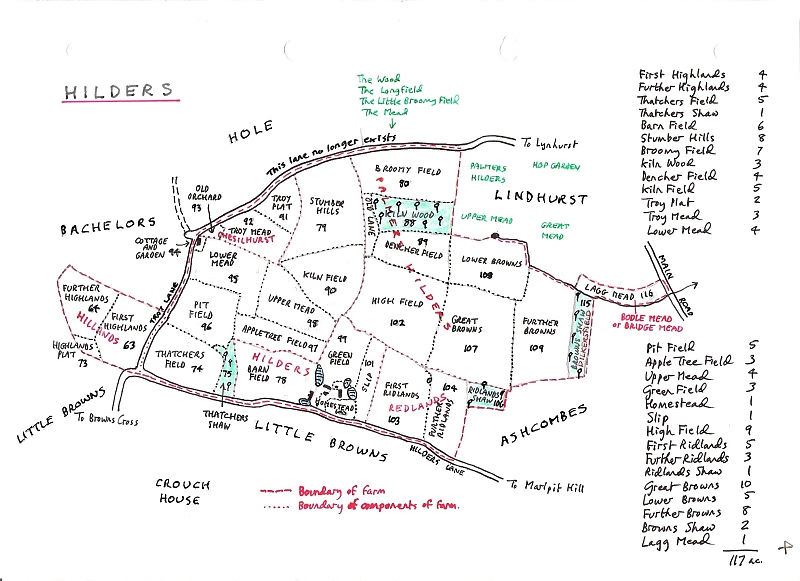 HILDERS
The Wood
The Longfield
The Little Broomy Field
The Mead
HOLE
This lane no longer exists
To Lynhurst
BROOMY FIELD
80
PALMERS
HILDERS
HOP GARDEN
LINDHURST
OLD
ORCHARD
93
TROY
PLAT
91
STUMBER
HILLS
79
OLD LANE
KILN WOOD
88
PALMERS HILDERS
UPPER MEAD
GREAT
MEAD
BACHELORS
92
TROY MEAD
CHESILHURST
COTTAGE
AND
GARDEN 94
LOWER
MEAD
95
DENCHER FIELD
89
LOWER BROWNS
108
KILN FIELD
90
FURTHER
HIGHLANDS
64
FIRST
HIGHLANDS
63
HILLANDS
HIGHLANDS
PLAT
73
TROY LANE
PIT
FIELD
96
UPPER MEAD
98
HIGH FIELD
102
GREAT
BROWNS
107
FURTHER
BROWNS
109
115
BROWNS SHAW
LAGG MEAD 116
MAIN
ROAD
BODLE MEAD
or BRIDGE MEAD
APPLETREE FIELD 97
99
GREEN
FIELD
101
SLIP
THATCHERS
FIELD
74
HILDERS
BARN
FIELD 78
HOMESTEAD
FIRST
RIDLANDS
103
REDLANDS
104
FURTHER
RIDLANDS
RIDLANDS
SHAW 106
THATCHERS
SHAW
LITTLE BROWNS
To Browns Cross
LITTLE BROWNS
HILDERS LANE
ASHCOMBES
To Marlpit Hill
CROUCH
HOUSE
Boundary of farm
Boundary of components of farm.
First Highlands 4
Further Highlands 4
Thatchers Field 5
Thatchers Shaw 1
Barn Field 6
Stumber Hills 8
Broomy Field 7
Kiln Wood 3
Dencher Field 4
Kiln Field 5
Troy Plat 2
Troy Mead 3
Lower Mead 4
Pit Field 5
Apple Tree Field 3
Upper Mead 4
Green Field 3
Homestead 1
Slip 1
High Field 9
First Ridlands 5
Further Ridlands 3
Ridlands Shaw 1
Great Browns 10
Lower Browns 5
Further Browns 8
Browns Shaw 2
Lagg Mead 1
117 ac.